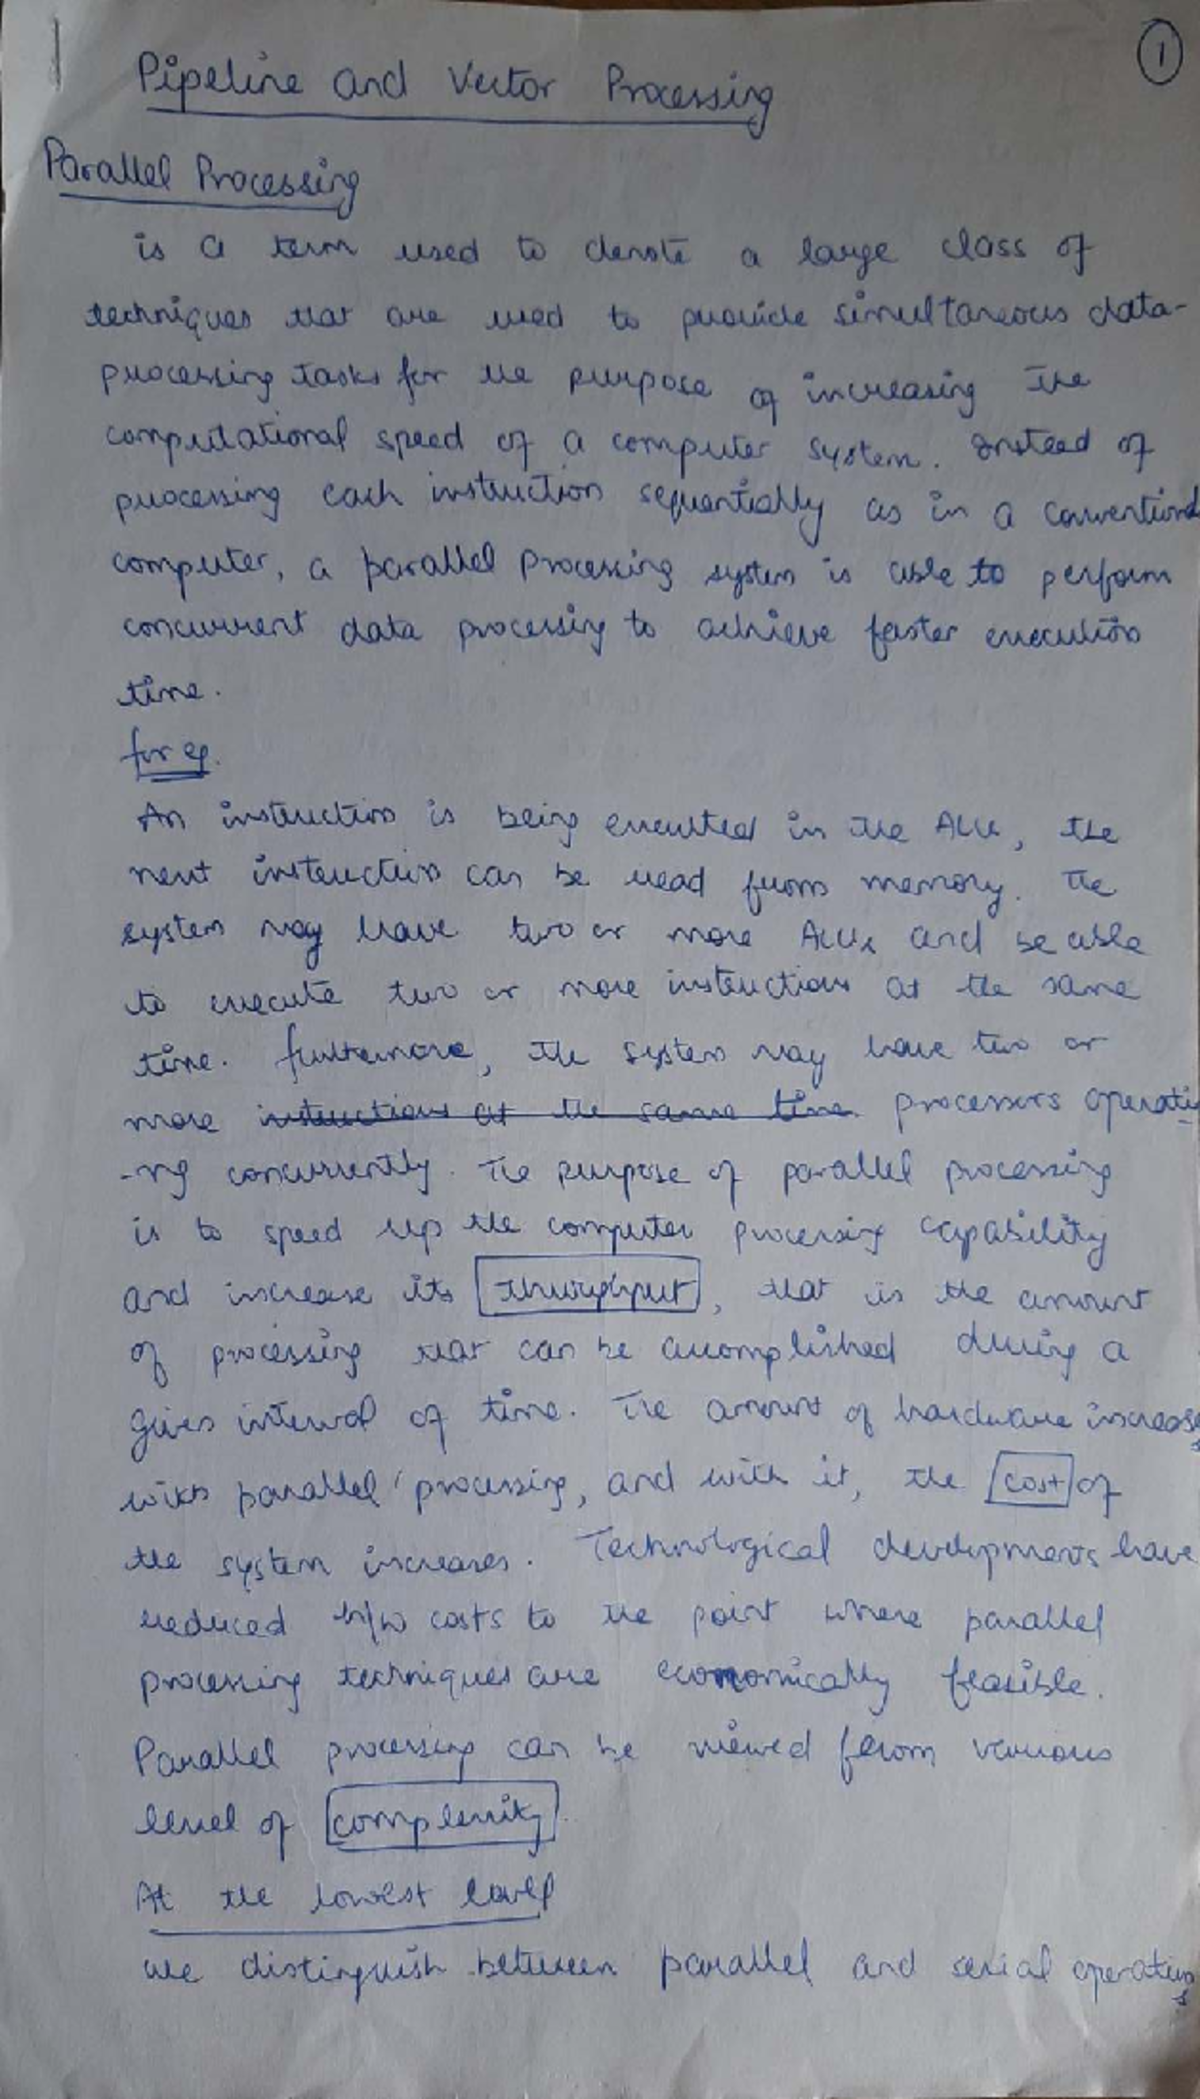 1
Pipeline and Vector Processing
Parallel Processing
is a term used to denote a large class of
techniques that are used to provide simultaneous data-
processing tasks for the purpose of increasing the
computational speed of a computer system. Instead of
processing each instruction sequentially as in a conventional
computer, a parallel processing system is able to perform
concurrent data processing to achieve faster execution
time.
for eg.
An instruction is being executed in the ALU, the
next instruction can be read from memory. The
system may have two or more ALUs and be able
to execute two or more instructions at the same
time. furthermore, the system may have two or
more instructions at the same time processors operati
-ng concurrently. The purpose of parallel processing
is to speed up the computer processing capability
and increase its throughput, that is the amount
of processing that can be accomplished during a
given interval of time. The amount of hardware increases
with parallel processing, and with it, the cost of
the system increases. Technological developments have
reduced h/w costs to the point where parallel
processing techniques are economically feasible.
Parallel processing can be viewed from various
level of complexity.
At the lowest level
we distinguish between parallel and serial operations